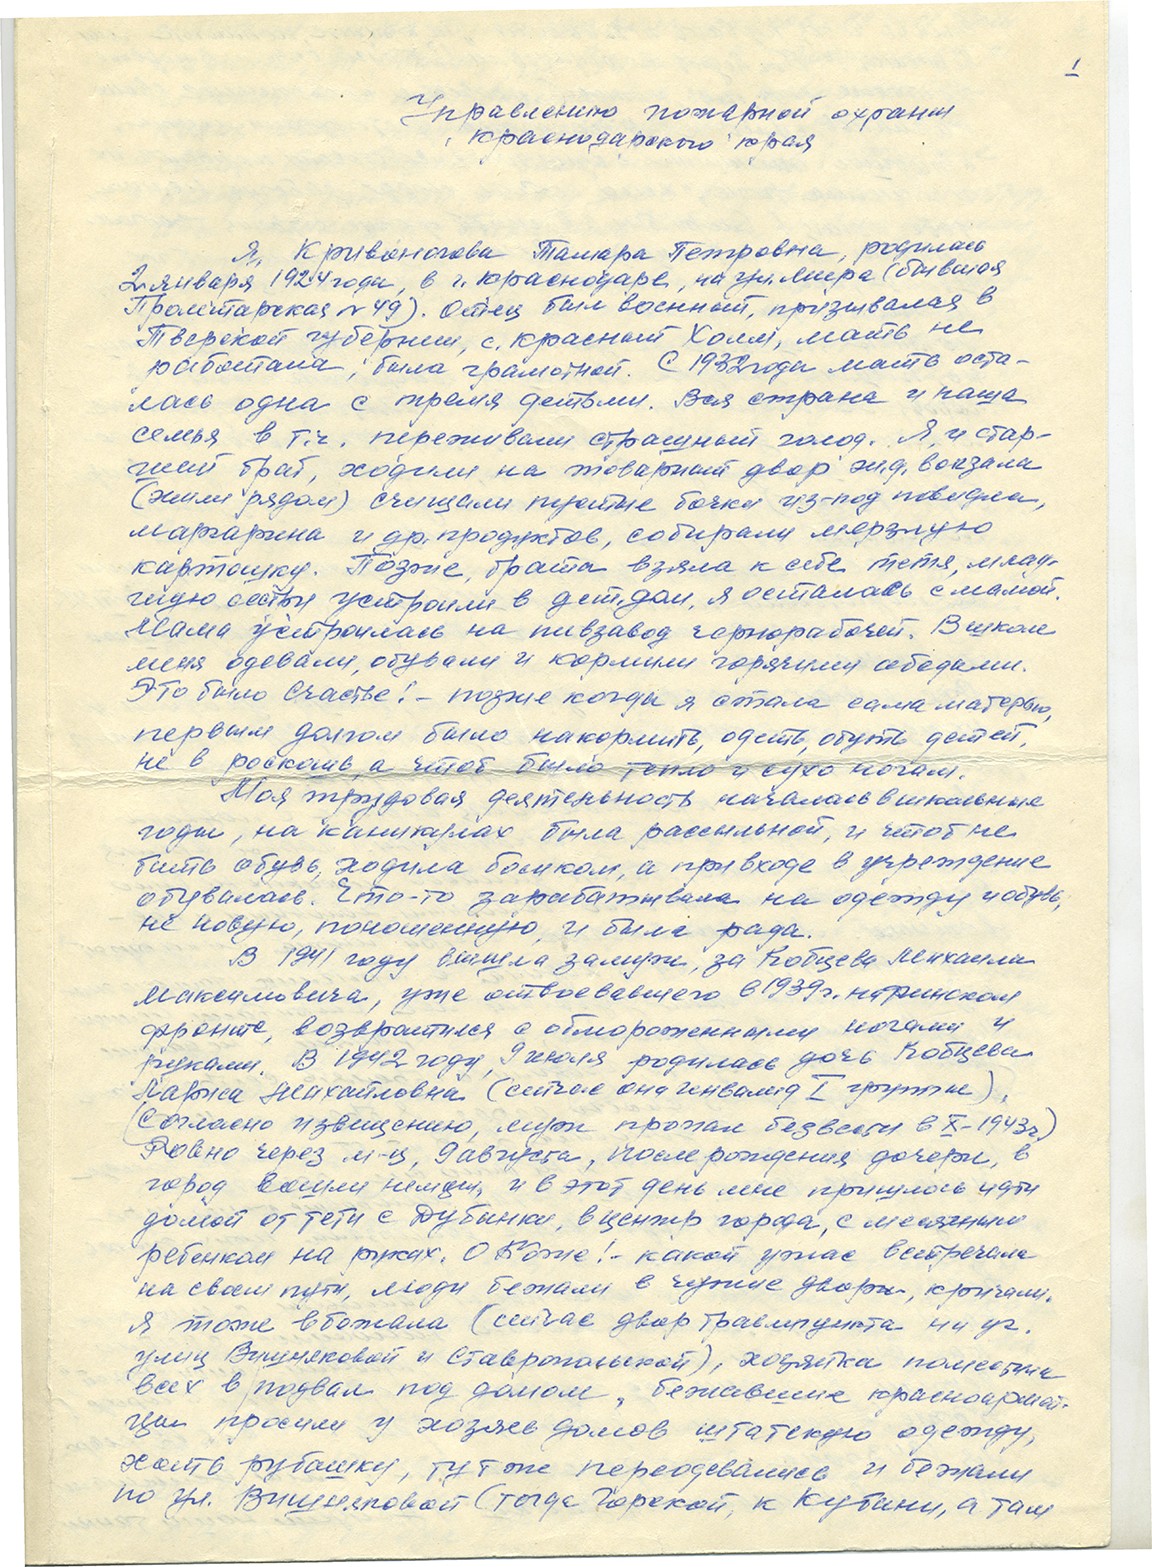 1
Управлению пожарной охраны
Краснодарского края
Я, Кривоногова Тамара Петровна, родилась
2 января 1924 года, в г. Краснодаре, на ул. Мира (бывшая
Пролетарская № 49). Отец был военный, призывался в
Тверской губернии, с. Красный Холм, мать не
работала, была грамотной. С 1932 года мать оста-
лась одна с тремя детьми. Вся страна и наша
семья в т.ч. переживали страшный голод. Я и стар-
ший брат, ходили на товарный двор ж.д. вокзала
(жили рядом) счищали пустые бочки из-под повидла,
маргарина и др. продуктов, собирали мерзлую
картошку. Позже, брата взяла к себе тетя, млад-
шую сестру устроили в дет.дом, я осталась с мамой.
Мама устроилась на пивзавод чернорабочей. В школе
меня одевали, обували и кормили горячими обедами.
Это было счастье! - позже когда я стала сама матерью,
первым долгом было накормить, одеть, обуть детей,
не в роскошь, а чтоб было тепло и сухо ногам.
Моя трудовая деятельность началась в школьные
годы, на каникулах была рассыльной, и чтоб не
бить обувь, ходила босиком, а при входе в учреждение
обувалась. Что-то зарабатывала на одежду и обувь,
не новую, поношенную, и была рада.
В 1941 году вышла замуж, за Кобцева Михаила
Максимовича, уже отвоевавшего в 1939 г. на финском
фронте, возвратился с обмороженными ногами и
руками. В 1942 году, 9 июля родилась дочь Кобцева
Лариса Михайловна (сейчас она инвалид I группы),
(Согласно извещению, муж пропал без вести в X-1943 г.)
Ровно через м-ц, 9 августа, после рождения дочери, в
город вошли немцы, и в этот день мне пришлось идти
домой от тети с Дубинки, в центр города, с месячным
ребенком на руках. О Боже! - какой ужас встречала
на своем пути, люди бежали в чужие дворы, кричали.
Я тоже вбежала (сейчас двор травмпункта на уг.
улиц Вишняковой и Ставропольской), хозяйка поместила
всех в подвал под домом, бежавшие красноармей-
цы просили у хозяев домов штатскую одежду,
хоть рубашку, тут же переодевались и бежали
по ул. Вишняковой (тогда Горской, к Кубани, а там